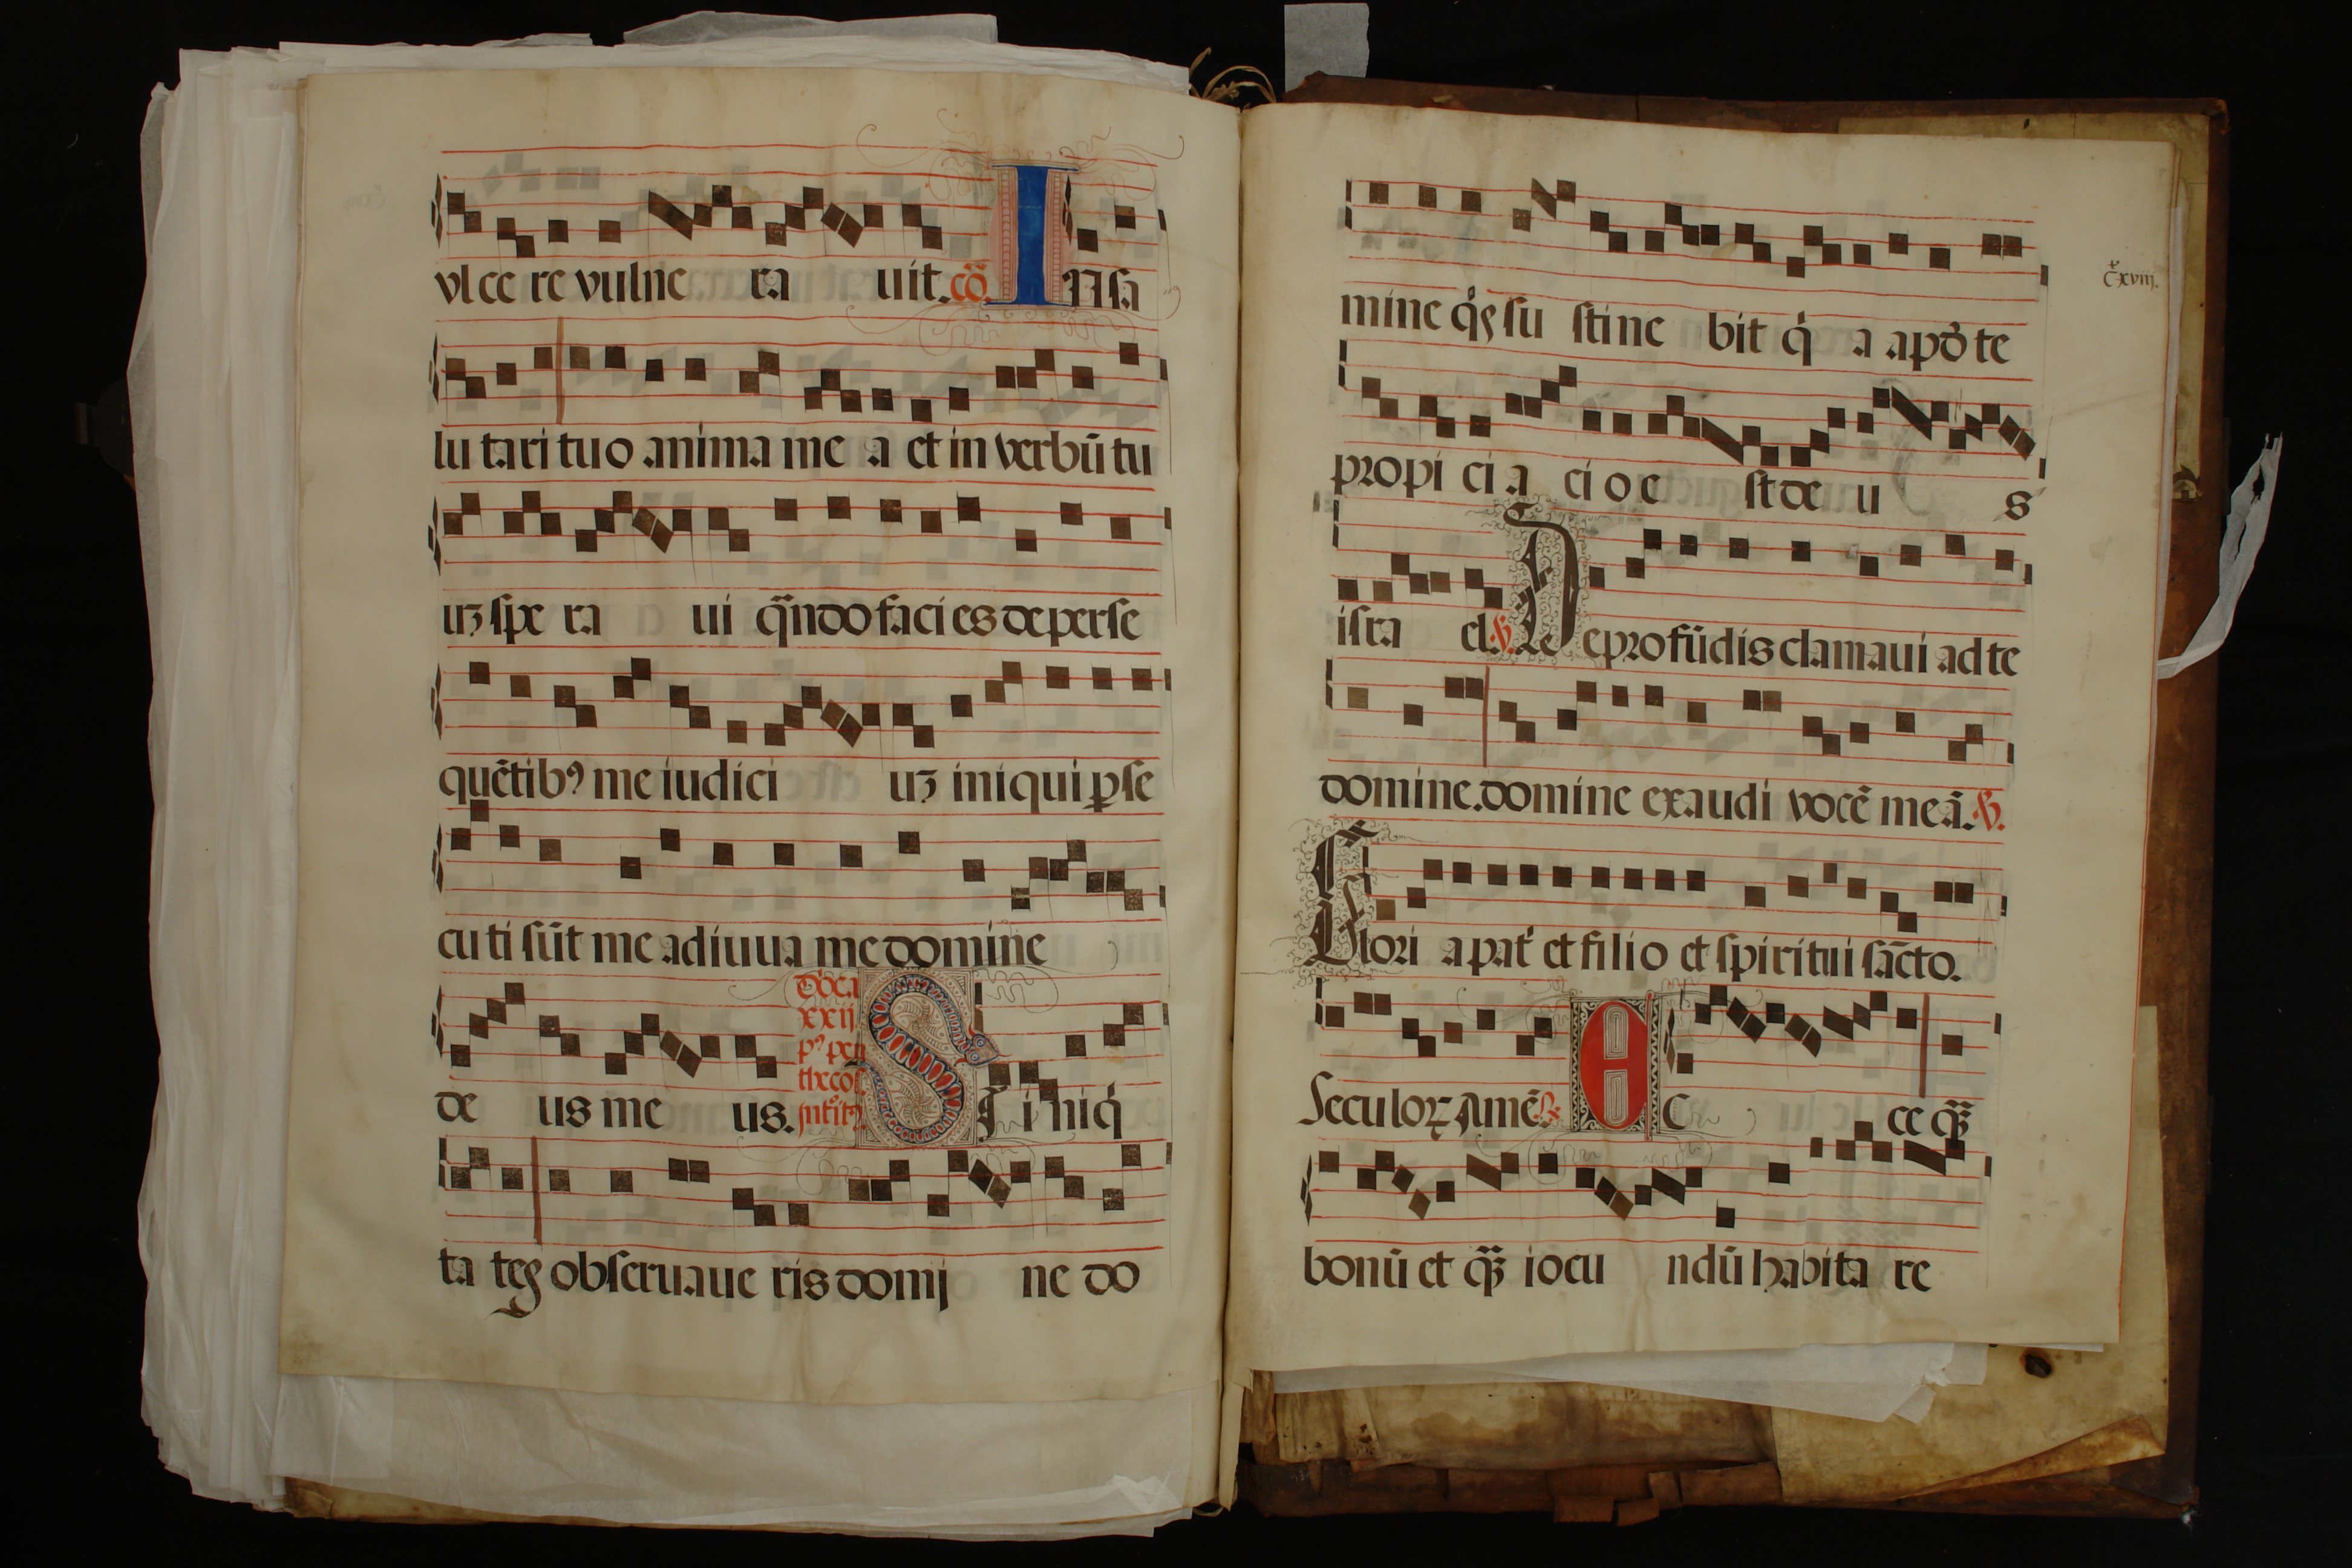 vl ce re vulne ra uit. cõ. IN sa
lu tari tuo anima me a et in verbũ tu
uȝ spe ra ui qñdo faci es de perse
quẽtibꝰ me iudici uȝ iniqui ꝑse
cuti sũt me adiuua me domine
de us me us.
xxij
SI i niq̇
ta tes obseruaue ris domi ne do
cxviij.
mine q̇s su stine bit q̇ a apḋ te
propi ci a ci o e st de u s
isra el. ℣. De profũdis clamaui ad te
domine. domine exaudi vocẽ meã. ℣.
Glori a pat̉ et filio et spiritui sãcto.
Seculoꝝ Amẽ. ℟. Ec ce q̃ȝ
bonũ et q̃ȝ iocu ndũ habita re